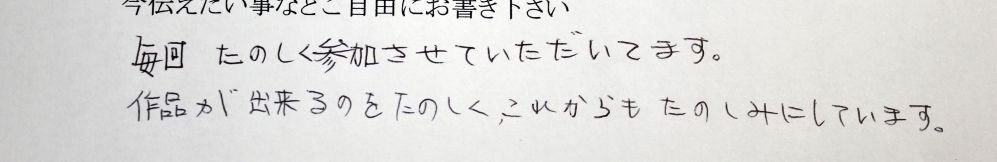 今伝えたい事などご自由にお書き下さい
毎回 たのしく参加させていただいてます。
作品が出来るのをたのしく、これからも たのしみにしています。